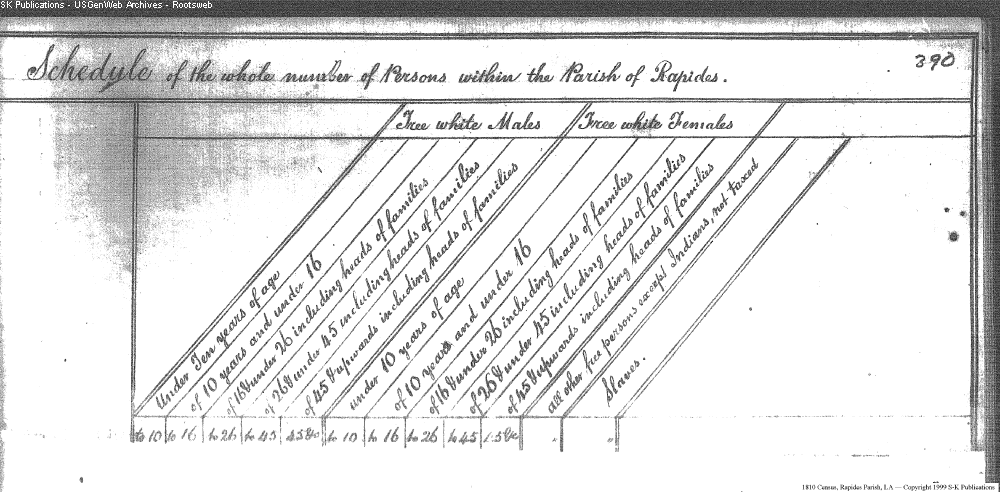 SK Publications - USGenWeb Archives - Rootsweb
390
Schedule of the whole number of Persons within the Parish of Rapides.
Free white Males
Free white Females
Under Ten years of age
of 10 years and under 16
of 16 & under 26 including heads of families
of 26 & under 45 including heads of families
of 45 & upwards including heads of families
under 10 years of age
of 10 years and under 16
of 16 & under 26 including heads of families
of 26 & under 45 including heads of families
of 45 & upwards including heads of families
all other free persons except Indians, not taxed
Slaves.
to 10 to 16 to 26 to 45 45 &c to 10 to 16 to 26 to 45 45 &c " "
1810 Census, Rapides Parish, LA — Copyright 1999 S-K Publications